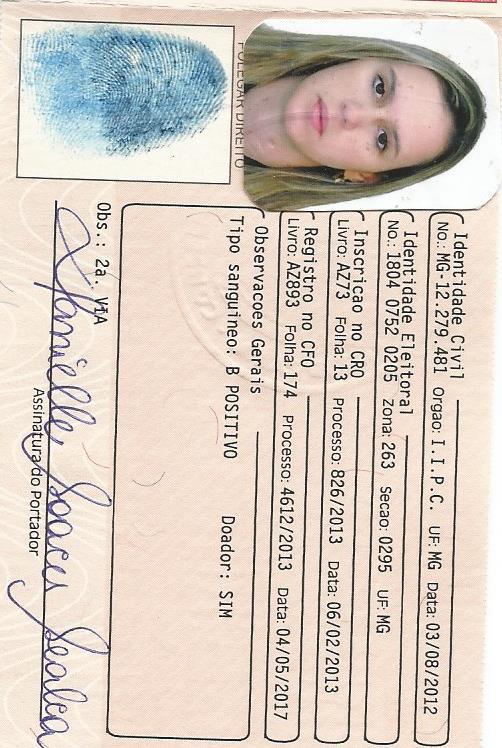 POLEGAR DIREITO
Identidade Civil
No.: MG-12.279.481 Orgao: I.I.P.C. UF: MG Data: 03/08/2012
Identidade Eleitoral
No.: 1804 0752 0205 Zona: 263 Secao: 0295 UF: MG
Inscricao no CRO
Livro: AZ73 Folha: 13 Processo: 826/2013 Data: 06/02/2013
Registro no CFO
Livro: AZ893 Folha: 174 Processo: 4612/2013 Data: 04/05/2017
Observacoes Gerais
Tipo sanguineo: B POSITIVO Doador: SIM
Obs.: 2a. VIA
Soares
Assinatura do Portador